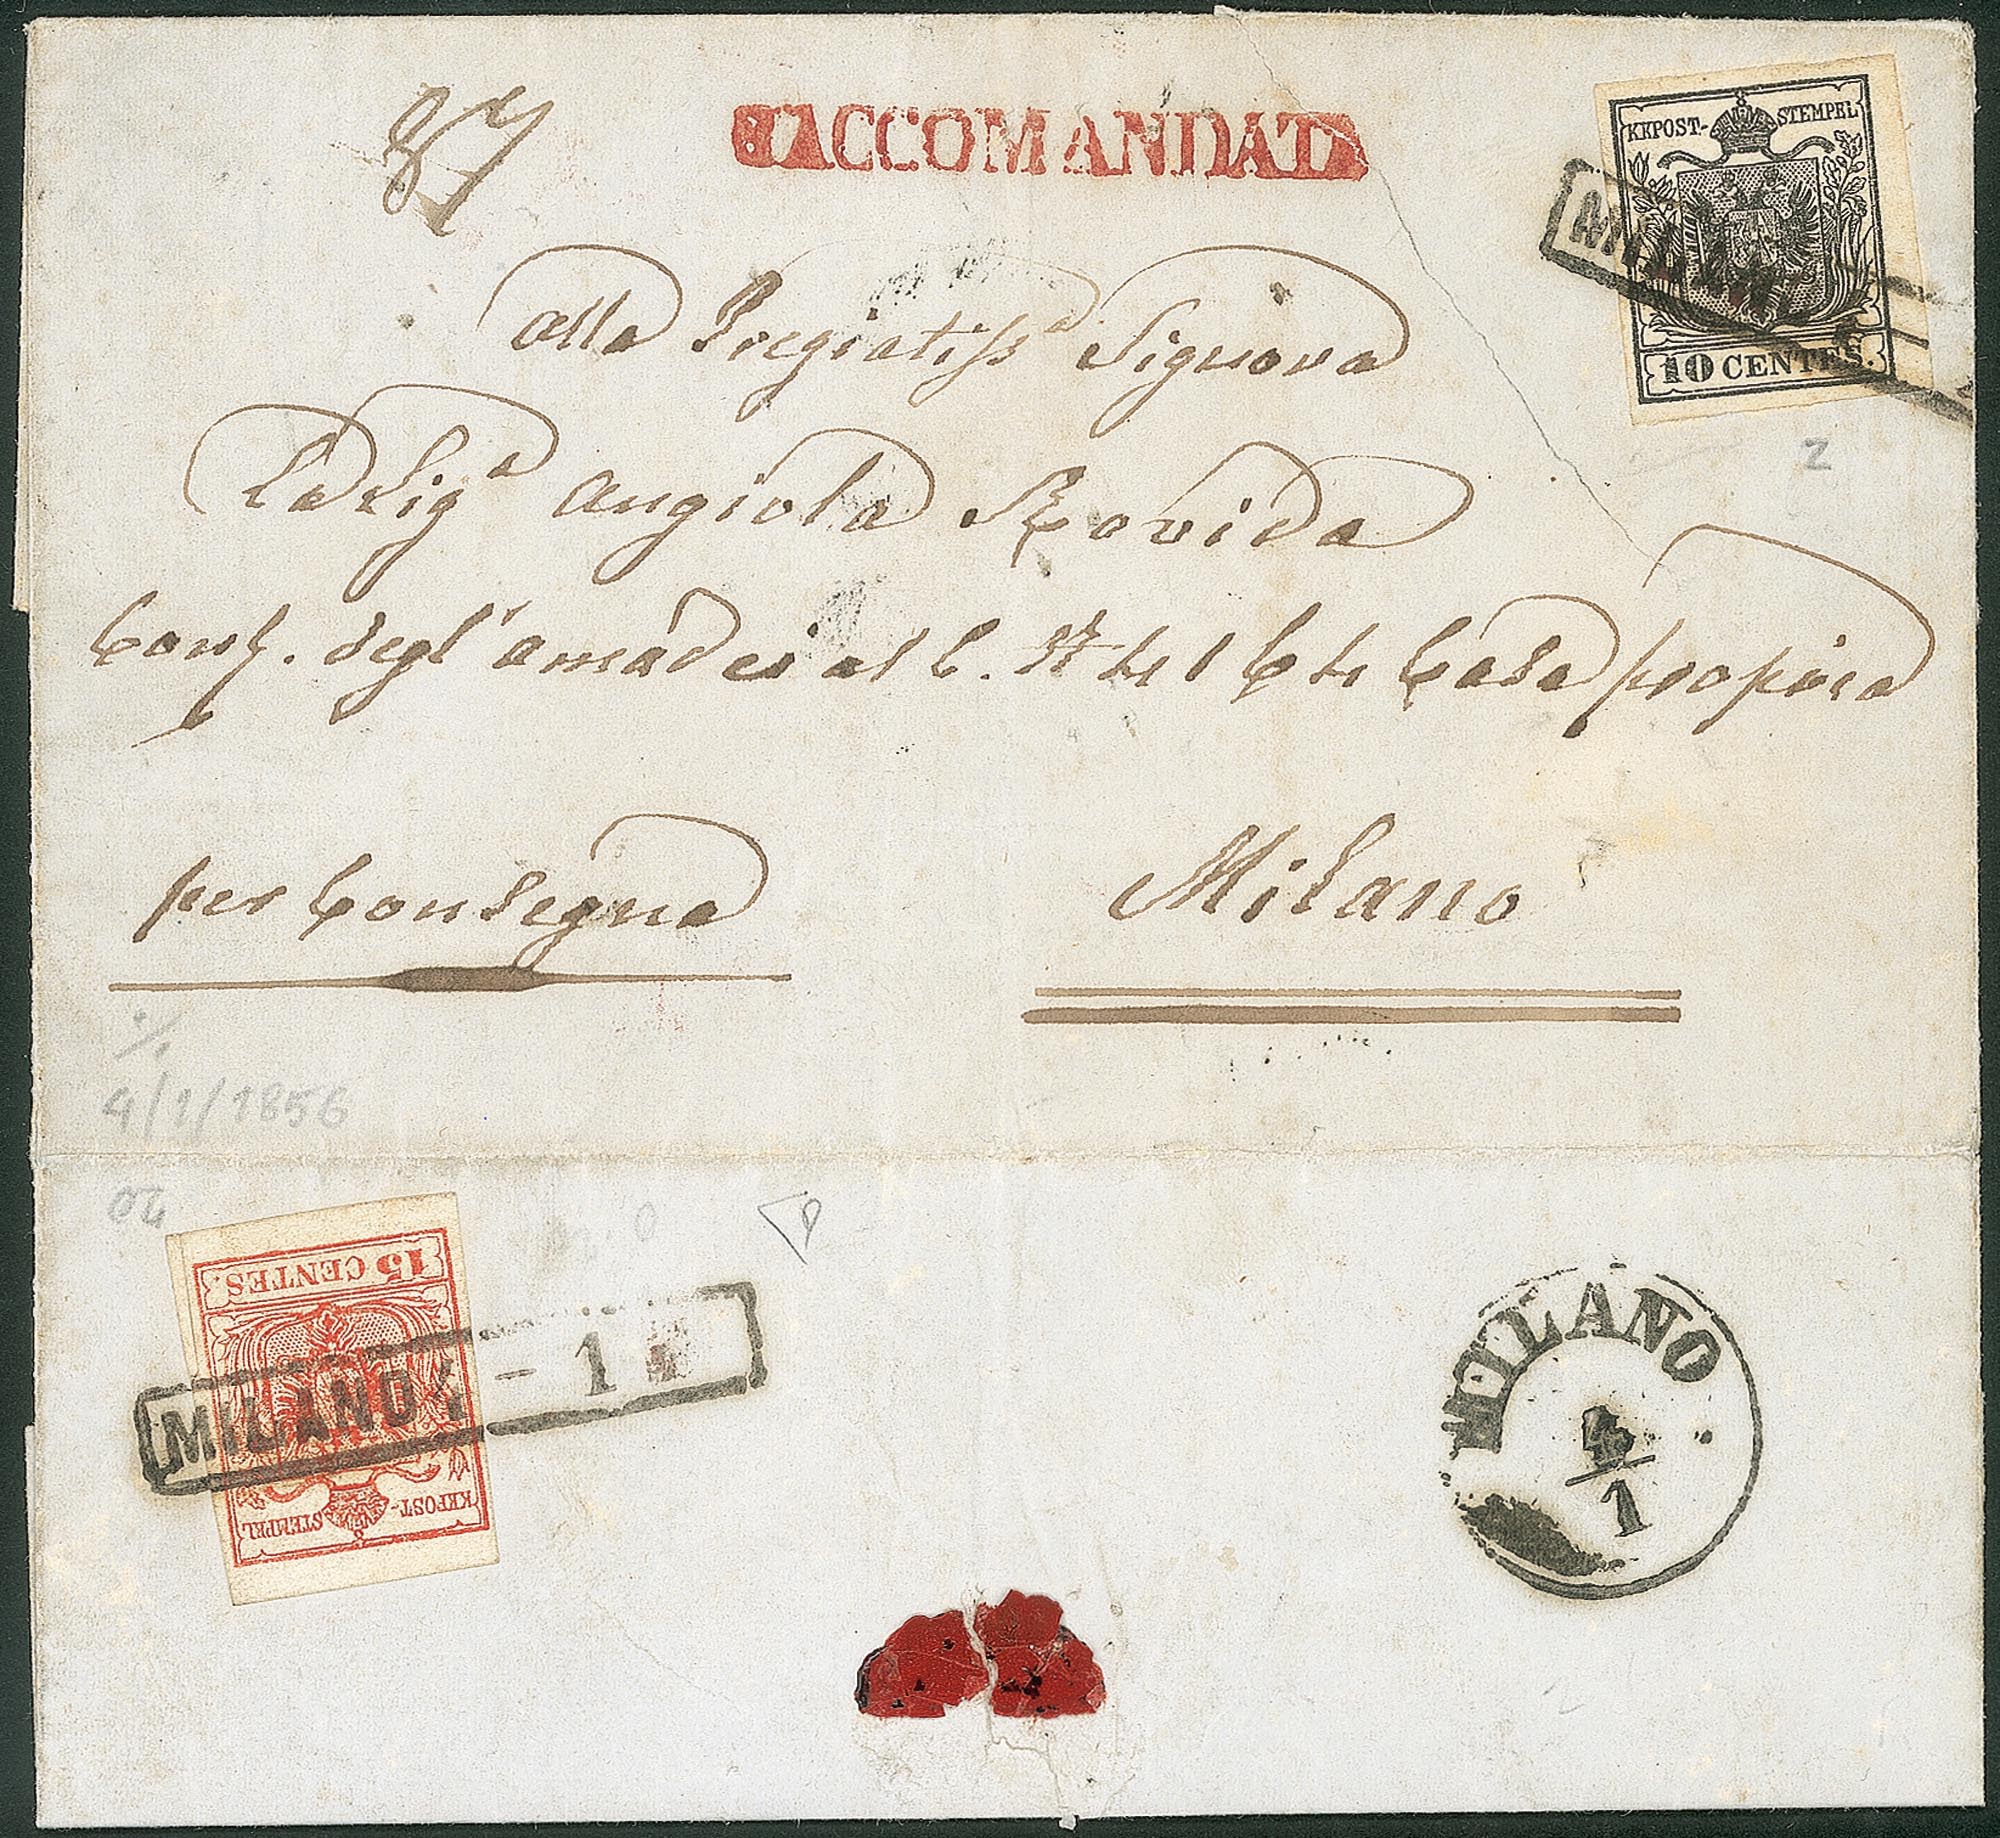 87
RACCOMANDATA
KKPOST-STEMPEL
MILANO
10 CENTES.
Alla Pregiatiss.a Signora
La Sig.a Angiola Rovida
2
Cont. degl'Amadei al C. N. Casa propria
per Consegna
Milano
4/1/1856
04
15 CENTES.
MILANO 4 - 1
KKPOST-STEMPEL
MILANO
4/1